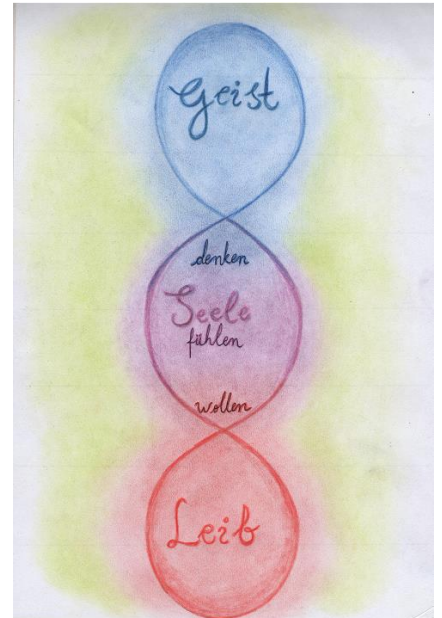 Geist
denken
Seele
fühlen
wollen
Leib